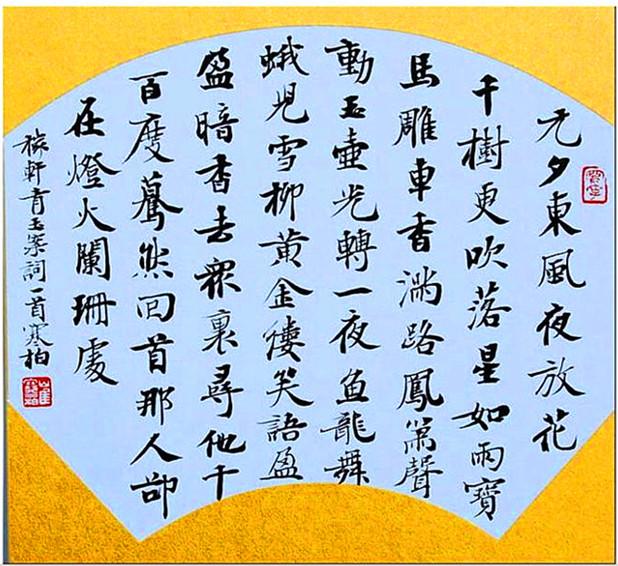 元夕東風夜放花
千樹更吹落星如雨寶
馬雕車香滿路鳳簫聲
動玉壺光轉一夜魚龍舞
蛾兒雪柳黃金縷笑語盈
盈暗香去眾裏尋他千
百度驀然回首那人卻
在燈火闌珊處
稼軒青玉案詞一首寒柏